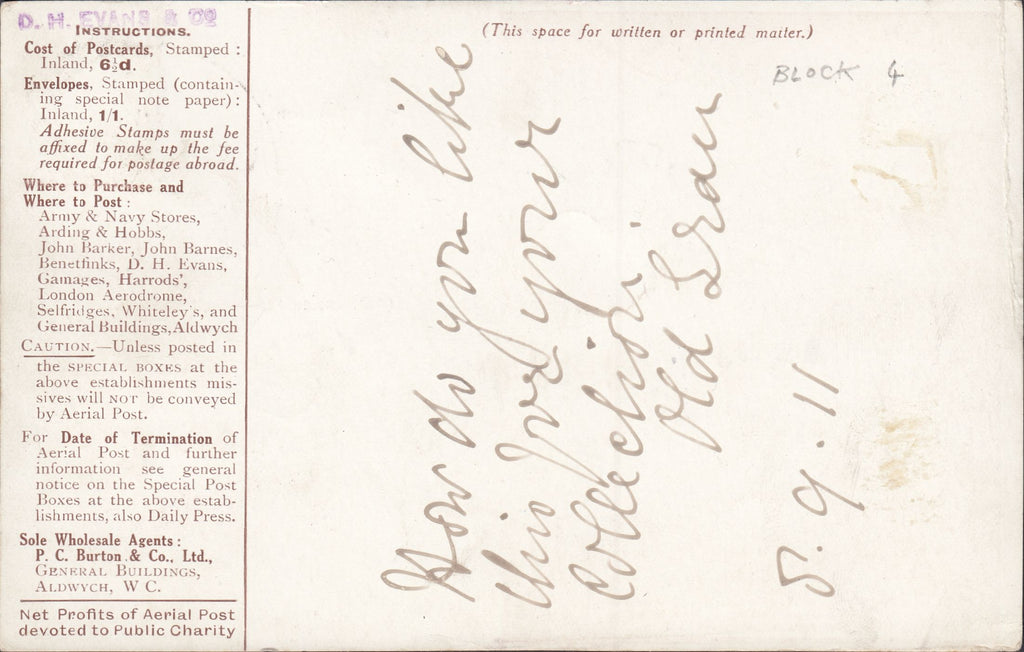 D. H. EVANS & Co
INSTRUCTIONS.
Cost of Postcards, Stamped :
Inland, 6½d.
Envelopes, Stamped (contain-
ing special note paper) :
Inland, 1/1.
Adhesive Stamps must be
affixed to make up the fee
required for postage abroad.
Where to Purchase and
Where to Post :
Army & Navy Stores,
Arding & Hobbs,
John Barker, John Barnes,
Benetfinks, D. H. Evans,
Gamages, Harrods',
London Aerodrome,
Selfridges, Whiteley's, and
General Buildings, Aldwych
CAUTION.—Unless posted in
the SPECIAL BOXES at the
above establishments mis-
sives will NOT be conveyed
by Aerial Post.
For Date of Termination of
Aerial Post and further
information see general
notice on the Special Post
Boxes at the above estab-
lishments, also Daily Press.
Sole Wholesale Agents :
P. C. Burton & Co., Ltd.,
GENERAL BUILDINGS,
ALDWYCH, W C.
Net Profits of Aerial Post
devoted to Public Charity
(This space for written or printed matter.)
BLOCK 4
How do you like
this for your
Collection
Old
5. 9. 11